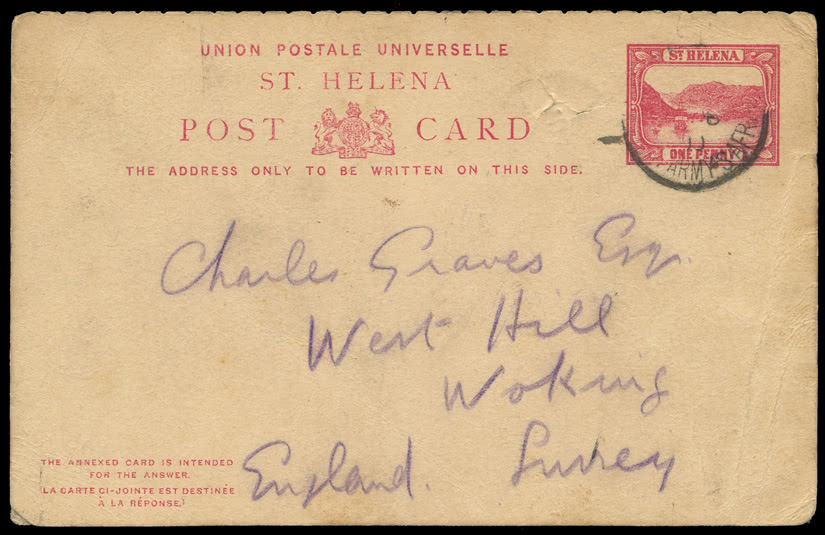 UNION POSTALE UNIVERSELLE
ST. HELENA
POST CARD
THE ADDRESS ONLY TO BE WRITTEN ON THIS SIDE.
ST HELENA
ONE PENNY
ARMY
Charles Graves Esq.
West Hill
Woking
Surrey
England.
THE ANNEXED CARD IS INTENDED
FOR THE ANSWER.
(LA CARTE CI-JOINTE EST DESTINÉE
À LA RÉPONSE.)